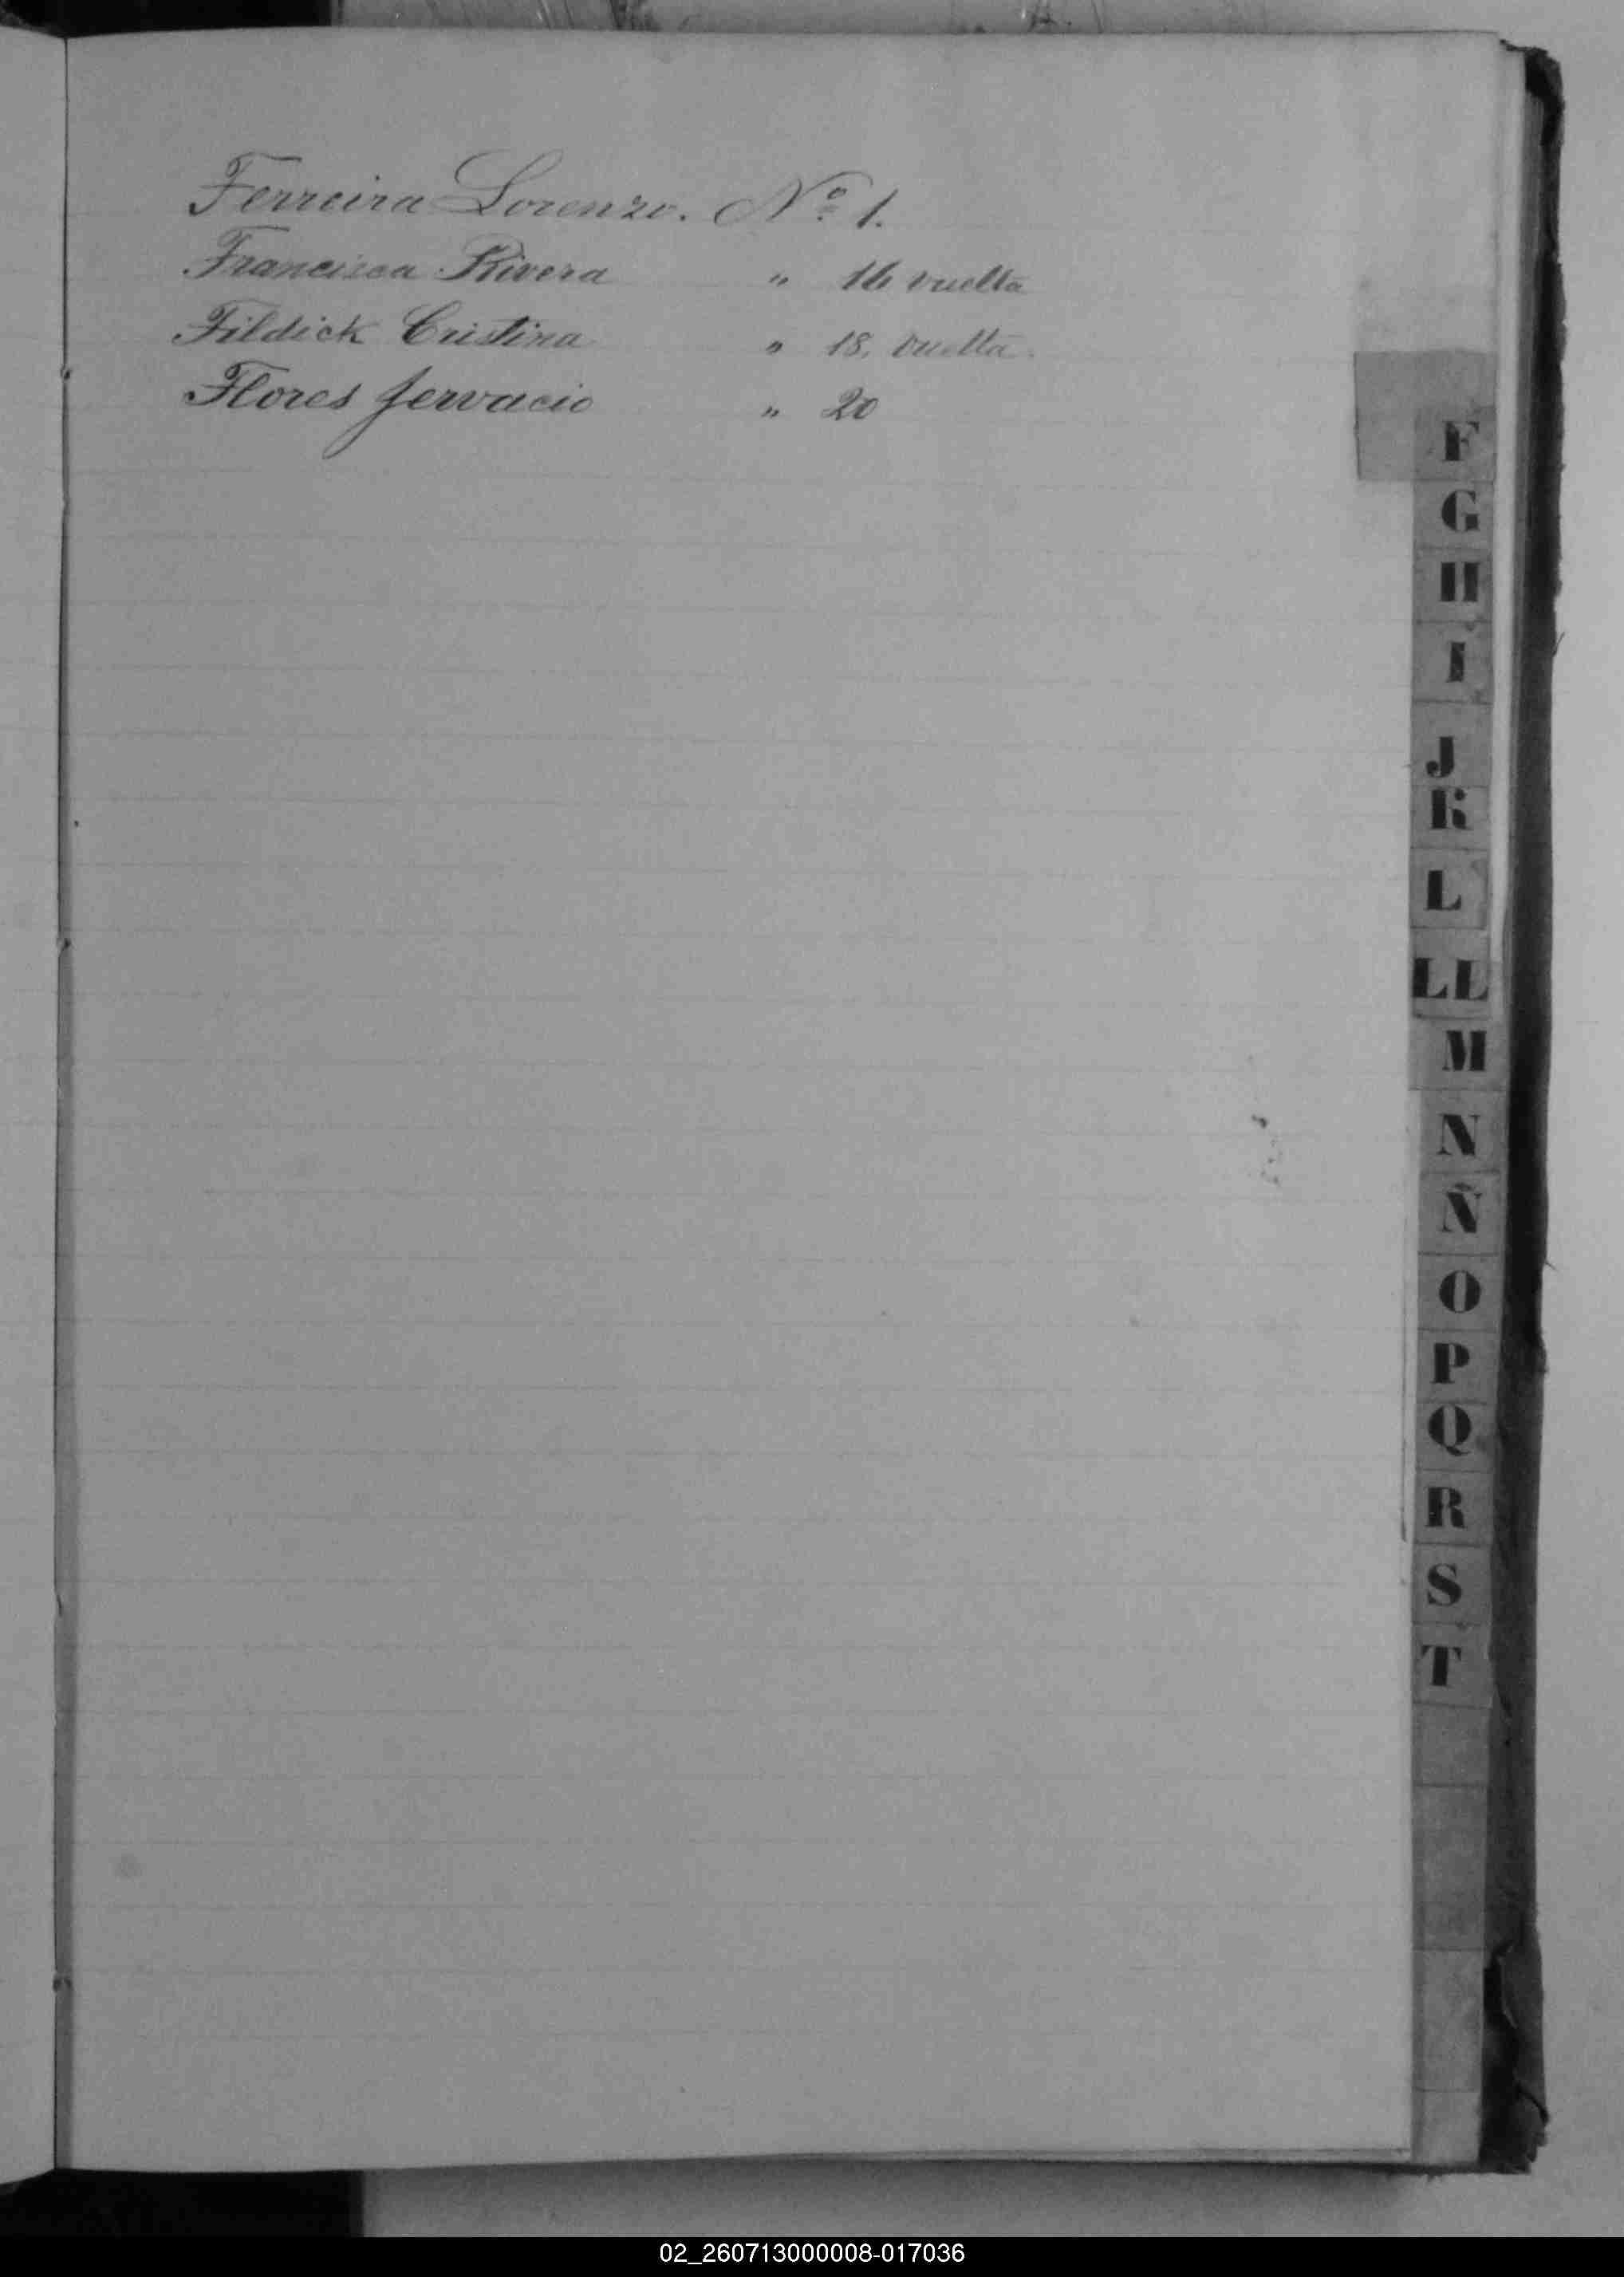 Ferreira Lorenzo. Nº 1.
Francisca Rivera " 16 vuelta
Fildick Cristina " 18. vuelta.
Flores Jervacio " 20
F
G
H
I
J
K
L
LL
M
N
Ñ
O
P
Q
R
S
T
02_260713000008-017036